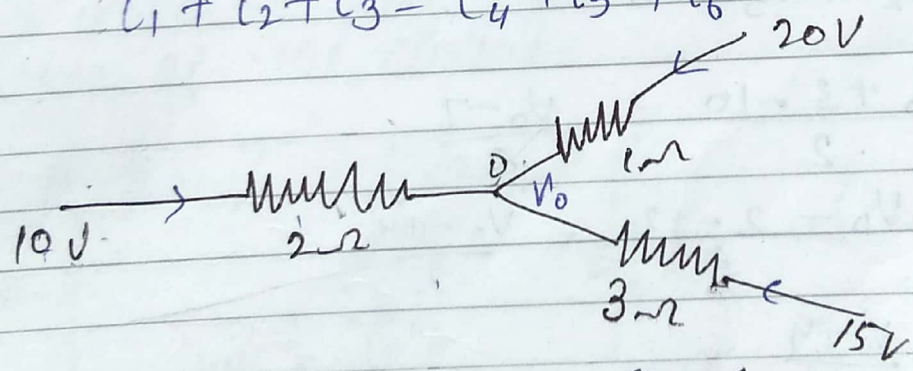 i₁ + i₂ + i₃ = i₄ + i₅ + i₆
20V
1Ω
O
V₀
10V
2Ω
3Ω
15V